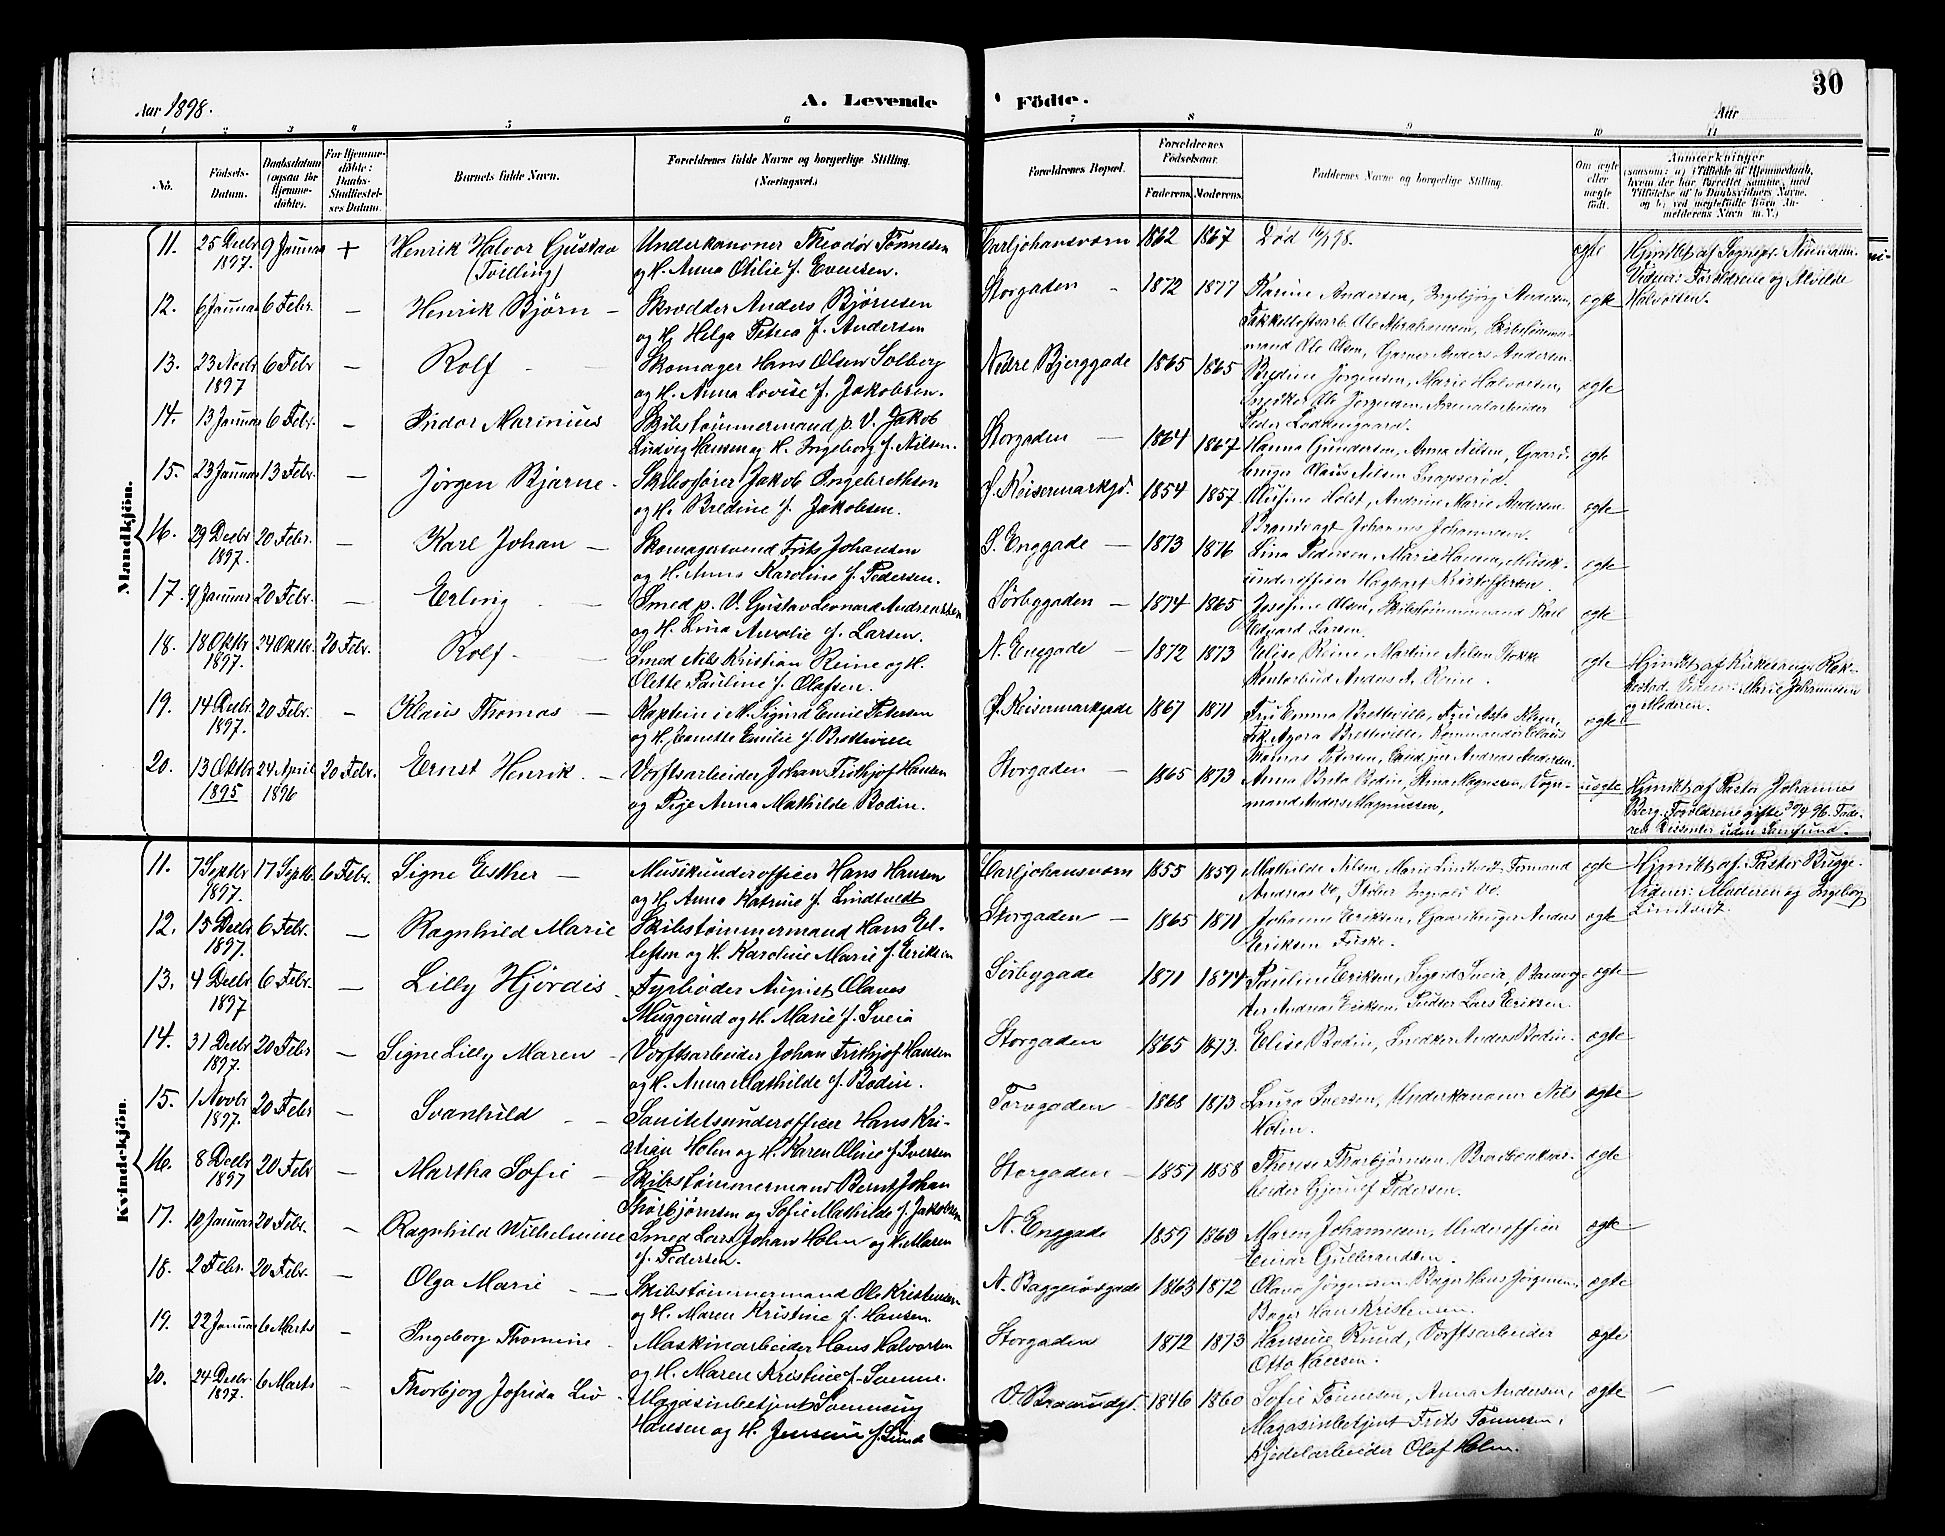 30
Aar 1898.
A. Levende
Födte.
Aar
1 2 3 4 5 6 7 8 9 10 11
No.
Födsels-Datum.
Daabsdatum (ogsaa for Hjemmedöbte).
For Hjemmedöbte: Daabs-Stadfæstelses Datum.
Barnets fulde Navn.
Forældrenes fulde Navne og borgerlige Stilling. (Næringsvei.)
Forældrenes Bopæl.
Forældrenes Födselsaar.
Faderens. Moderens.
Faddernes Navne og borgerlige Stilling.
Om ægte eller uægte födt.
Anmærkninger
Mandkjön.
11. 25 Decbr 1897. 9 Januar + Henrik Halvor Gustav (Tvilling) Underkanoner Theodor Tönnesen og H. Anna Otilie f. Evensen. Carljohansværn 1862 1867 Död ægte
Hjemdöbt af Sognepr.
Vidner: Forældrene og Alvilde Halvorsen.
12. 6 Januar 6 Febr. — Henrik Björn — Skrædder Anders Björnsen og H. Helga Petrea f. Andersen Storgaden 1872 1877 Karine Andersen, Ingebjörg Andersen, Ole Abrahamsen, Ole Olsen, Garver Anders Andersen. ægte
13. 23 Novbr 1897 6 Febr — Rolf — Skomager Hans Olsen Solberg og H. Anna Lovise f. Jakobsen. Nedre Bjerggade 1865 1865 Bredine Jörgensen, Marie Halvorsen, Snedker Ole Jörgensen, Arsenalarbeider Peder ægte
14. 13 Januar 6 Febr. — Indor Marinius Skibstömmermand p. V. Jakob Ludvig Hansen og H. Ingeborg f. Nilsen. Storgaden — 1864 1867 Hanna Gundersen, Anna Nilsen, Gaardbruger Olaus Nilsen ægte
15. 23 Januar 13 Febr. — Jörgen Bjarne — Skibsförer Jakob Engebrethsen og H. Bredine f. Jakobsen. Ö. Keisermarkgd. 1854 1857 Holst, Andrine Marie Andersen Johannes Johannesen. ægte
16. 29 Decbr 1897. 20 Febr. — Karl Johan — Skomagersvend Frits Johansen og H. Anna Karoline f. Pedersen. S. Enggade — 1873 1876 Lina Pedersen, Marie Hansen, Musikunderofficer Hagbart Kristoffersen. ægte
17. 9 Januar 20 Febr. — Erling — Smed p. V. Gustav Leonard Andreassen og H. Lina Amalie f. Larsen. Sörbygaden — 1874 1865 Josefine Olsen, Skibstömmermand Karl Edvard Larsen. ægte
18. 18 Oktbr 1897. 24 Oktbr. 20 Febr. Rolf — Smed Nils Kristian Reine og H. Olette Pauline f. Olafsen. N. Enggade — 1872 1873 Elise Reine, Martine Nilsen Kontorbud Anders A. Reine. ægte
Hjemdöbt af Kirkesanger
Vidner: Marie Johannesen og Moderen.
19. 14 Decbr. 1897. 20 Febr. — Klaus Thomas — Kaptein i M. Sigurd Emil Petersen og H. Jeanette Emilie f. Bretteville Ö. Keisermarkgade 1867 1871 Fru Emma Bretteville, Fru Asta Frk. Agora Bretteville, Kommandör Klaus Thomas Petersen, Andreas Andersen. ægte
20. 13 Oktbr 1895 24 April 1896 20 Febr. Ernst Henrik — Verftsarbeider Johan Frithjof Hansen og Pige Anna Mathilde Bodin. Storgaden — 1865 1873 Anna Berta Bodin, Magnussen, Vognmand Anders Magnussen, uægte
Hjemdöbt af Pastor Johannes Berg. Forældrene gifte 30/4 96. Faderen Dissenter uden Samfund.
Kvindekjön.
11. 7 Septbr 1897. 17 Septbr. 6 Febr. Signe Esther — Musikunderofficer Hans Hansen og H. Anna Katrine f. Lindtvedt Carljohansværn 1855 1859 Mathilde Nilsen, Marie Lindtvedt, ægte
Hjemdöbt af Pastor Brygge.
Vidner: Moderen og Ingeborg
12. 15 Decbr 1897. 6 Febr. — Ragnhild Marie Skibstömmermand Hans Ellefsen og H. Karoline Marie f. Eriksen Storgaden — 1865 1871 Johanne Eriksen, Gaardbruger Anders Eriksen Friske. ægte
13. 4 Decbr 1897 6 Febr. — Lilly Hjördis — Fyrböder August Olaves Muggerud og H. Marie f. Sveia Sörbygade 1871 1874 Pauline Eriksen, Sigrid Sveia, Andreas Eriksen, Pudser Lars Eriksen. ægte
14. 31 Decbr 1897. 20 Febr — Signe Lilly Maren — Verftsarbeider Johan Frithjof Hansen og H. Anna Mathilde f. Bodin. Storgaden 1865 1873. Elise Bodin, Snedker Anders Bodin. ægte
15. 1 Novbr 1897. 20 Febr — Svanhild — Sanitetsunderofficer Hans Kristian Holm og H. Karen Oline f. Iversen Torvgaden 1868 1873 Laura Iversen, Underkanoner Nils Holm. ægte
16. 8 Decbr 1897 20 Febr — Martha Sofie — Skibstömmermand Bernt Johan Thorbjörnsen og Sofie Mathilde f. Jakobsen Storgaden — 1857 1858 Therese Thorbjörnsen, Gjerulf Pedersen. ægte
17. 10 Januar 20 Febr. — Ragnhild Wilhelmine Smed Lars Johan Holm og H. Maren f. Pedersen. N. Enggade 1859 1860 Maren Johannesen, Underofficer Einar Gulbrandsen. ægte
18. 2 Febr. 20 Febr. — Olga Marie — Skibstömmermand Ole Kristensen og H. Maren Kristine f. Hansen. N. Baggerödgade 1863 1872 Olava Jörgensen, Bager Hans Jörgensen, Bager Hans Kristensen. ægte
19. 22 Januar 6 Marts — Ingeborg Thomine — Maskinarbeider Hans Halvorsen og H. Maren Kristine f. Storgaden 1872 1873 Hansine Ruud, Verftsarbeider Otto ægte
20. 24 Decbr 1897. 6 Marts — Thorbjorg Josfrida Liv — Magasinbetjent Hansen og H. Jensine f. Lund Ö. 1846 1860 Sofie Tönnesen, Anna Andersen, Magasinbetjent Frits Tönnesen, Kjedelarbeider Olaf Holm. ægte —